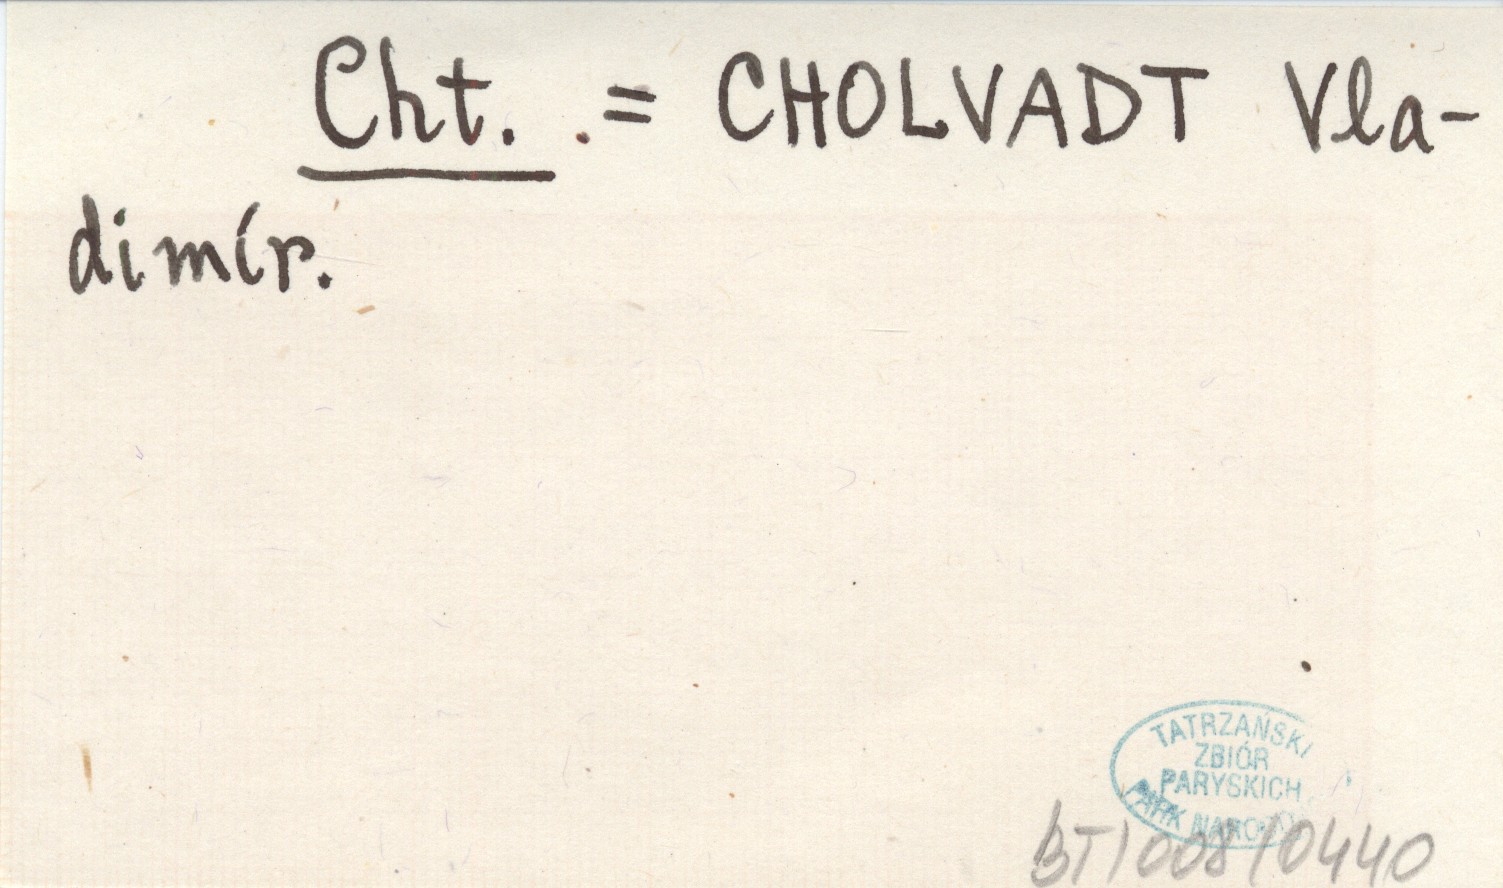 Cht. = CHOLVADT Vla-
dimír.
TATRZAŃSKI
ZBIÓR
PARYSKICH
PARK NARODOWY
BT/008/0440